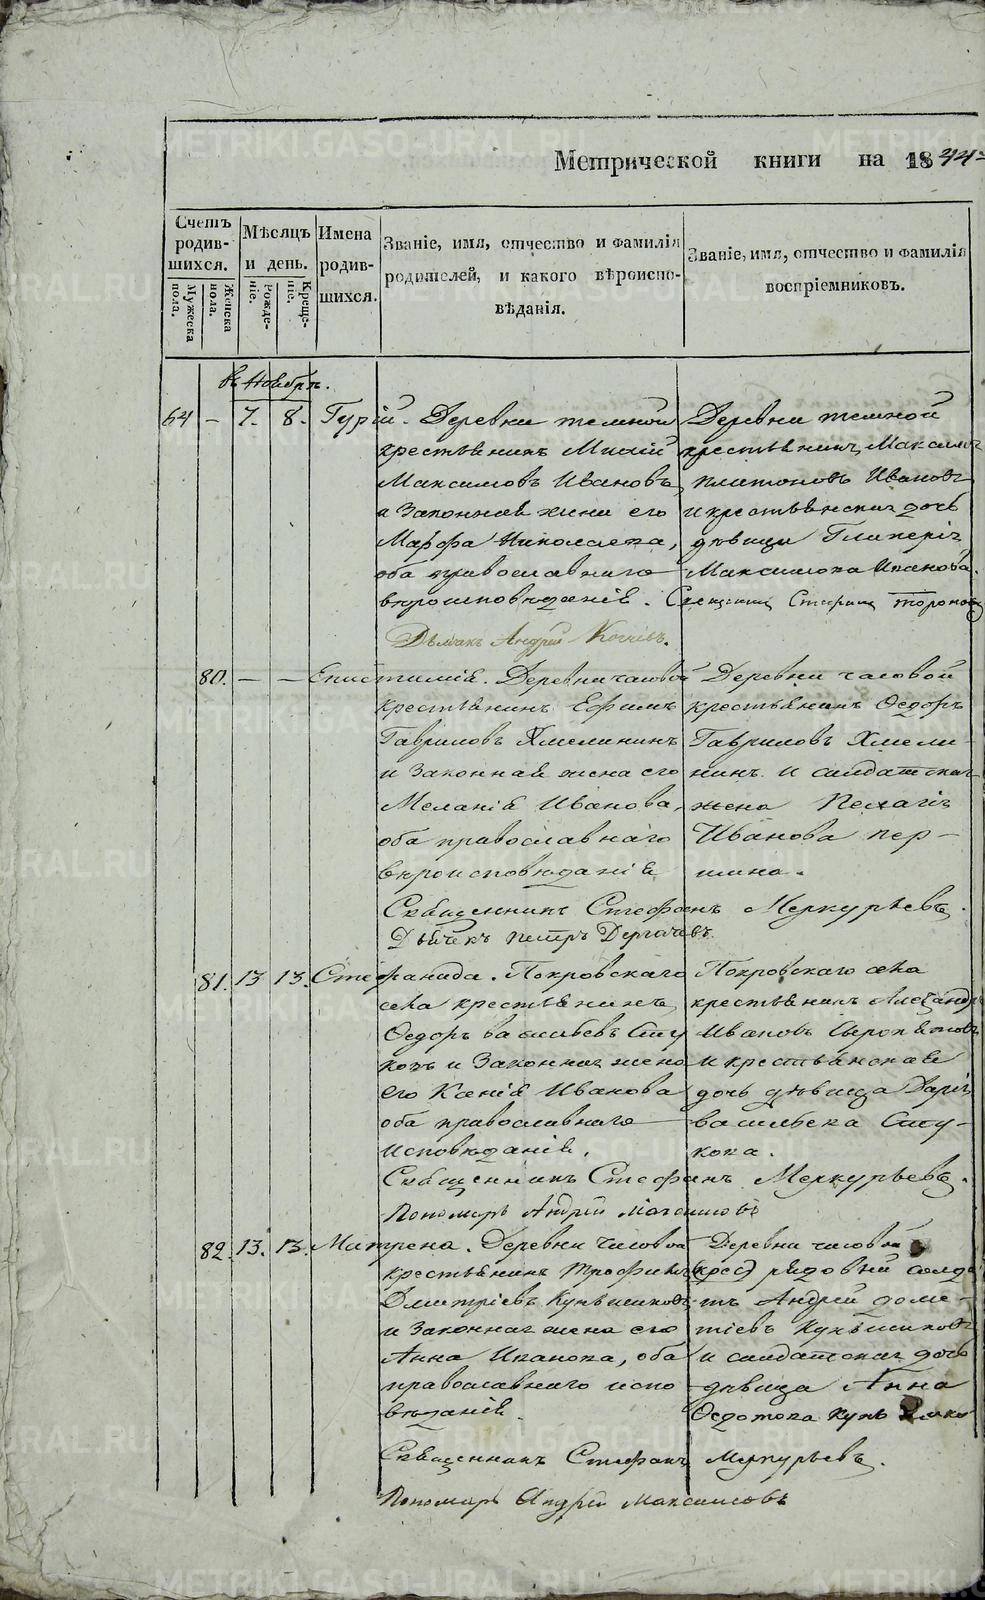 Метрической книги на 1844
Счетъ родив-шихся.
Мужеска пола.
Женска пола.
Мѣсяцъ и день.
Рожде-ніе.
Креще-ніе.
Имена родив-шихся.
Званіе, имя, отчество и фамилія
родителей, и какого вѣроиспо-
вѣданія.
Званіе, имя, отчество и фамилія
воспріемниковъ.
въ Ноябрѣ.
64 — 7. 8. Гурій.
Деревни темной
крестьянинъ
Максимовъ Ивановъ,
и Законная жена его
Марфа Николаева,
оба православнаго
вѣроисповѣданія.
Деревни темной
крестьянинъ Максимъ
Платоновъ Ивановъ
и крестьянская дочь
дѣвица Гликерія
Максимова Иванова.
Священникъ Стефанъ
Дьячекъ Андрей
80. — — Епистимія.
Деревни часовой
крестьянинъ Ефимъ
Гавриловъ Хмелининъ
и Законная жена его
Меланія Иванова,
оба православнаго
вѣроисповѣданія
Деревни часовой
крестьянинъ Ѳедоръ
Гавриловъ Хмели-
нинъ и солдатская
жена Пелагія
Иванова пер-
шина.
Священникъ Стефанъ Меркурьевъ.
Дьячекъ Петръ Дергачевъ.
81. 13 13. Стефанида.
Покровскаго
села крестьянинъ
Ѳедоръ васильевъ Сту
ковъ и Законная жена
его Ксенія Иванова
оба православнаго
исповѣданія.
Покровскаго села
крестьянинъ Александръ
Ивановъ
и крестьянская
дочь дѣвица Дарія
васильева Сту-
кова.
Священникъ Стефанъ Меркурьевъ.
Пономарь Андрей Максимовъ
82. 13. 13. Матрена.
Деревни часовой
крестьянинъ Трофимъ
Дмитріевъ
и Законная жена его
Анна Иванова, оба
православнаго испо
вѣданія.
Деревни часовой
рядовый солда
тъ Андрей доме-
тіевъ
и солдатская дочь
дѣвица Анна
Ѳедотова
Священникъ Стефанъ Меркурьевъ.
Пономарь Андрей Максимовъ
METRIKI.GASO-URAL.RU